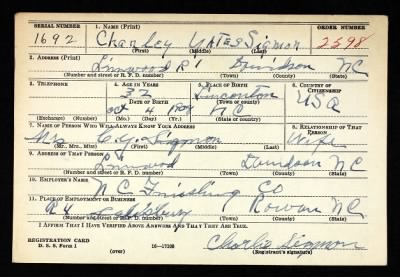 SERIAL NUMBER
1. NAME (Print)
ORDER NUMBER
1692
Charley YATES Sigmon
2598
(First) (Middle) (Last)
2. ADDRESS (Print)
Linwood R1 Davidson NC
(Number and street or R. F. D. number) (Town) (County) (State)
3. TELEPHONE
4. AGE IN YEARS
5. PLACE OF BIRTH
6. COUNTRY OF CITIZENSHIP
32
Lincolnton
DATE OF BIRTH
USA
Oct 4
N C
(Exchange) (Number) (Mo.) (Day) (Yr.) (State or country)
7. NAME OF PERSON WHO WILL ALWAYS KNOW YOUR ADDRESS
8. RELATIONSHIP OF THAT PERSON
Mrs C. Y. Sigmon
Wife
(Mr., Mrs., Miss) (First) (Middle) (Last)
9. ADDRESS OF THAT PERSON
Linwood Davidson NC
(Number and street or R. F. D. number) (Town) (County) (State)
10. EMPLOYER'S NAME
N C Finishing Co
11. PLACE OF EMPLOYMENT OR BUSINESS
Salisbury Rowan NC
(Number and street or R. F. D. number) (Town) (County) (State)
I AFFIRM THAT I HAVE VERIFIED ABOVE ANSWERS AND THAT THEY ARE TRUE.
REGISTRATION CARD
D. S. S. Form 1
(over)
16—17105
Charlie Sigmon
(Registrant's signature)